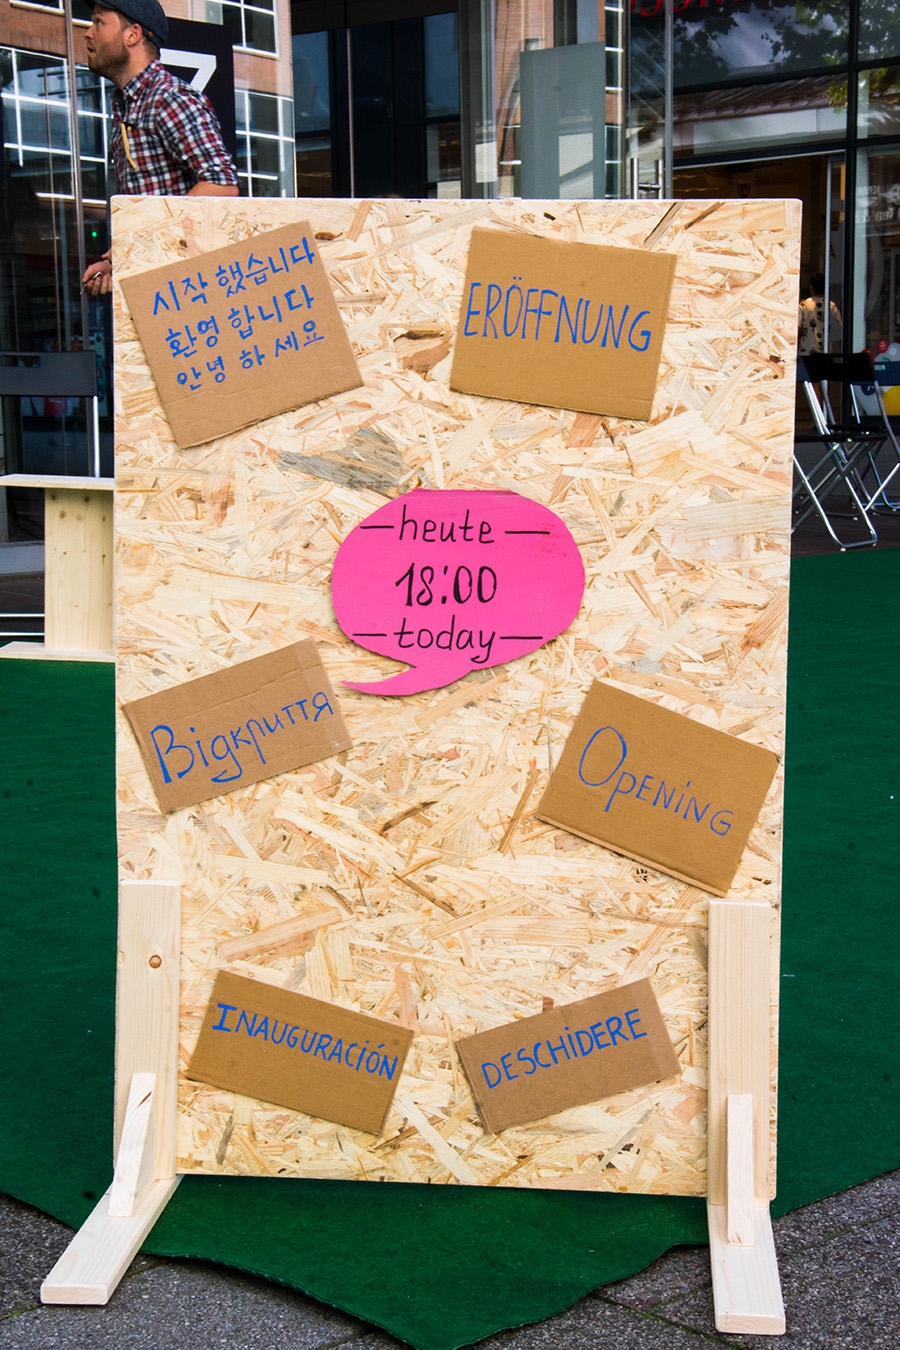 시작 했습니다
환영 합니다
안녕 하 세요
ERÖFFNUNG
— heute —
18:00
— today —
Відкриття
OPENING
INAUGURACIÓN
DESCHIDERE
7